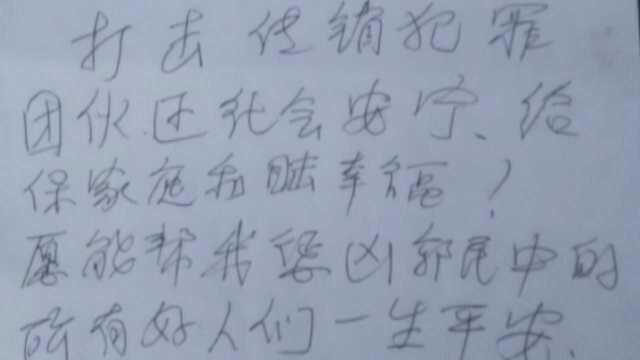 打击传销犯罪
团伙还社会安宁、给
保家庭和睦幸福！
愿能帮我惩凶部民中的
所有好人们一生平安